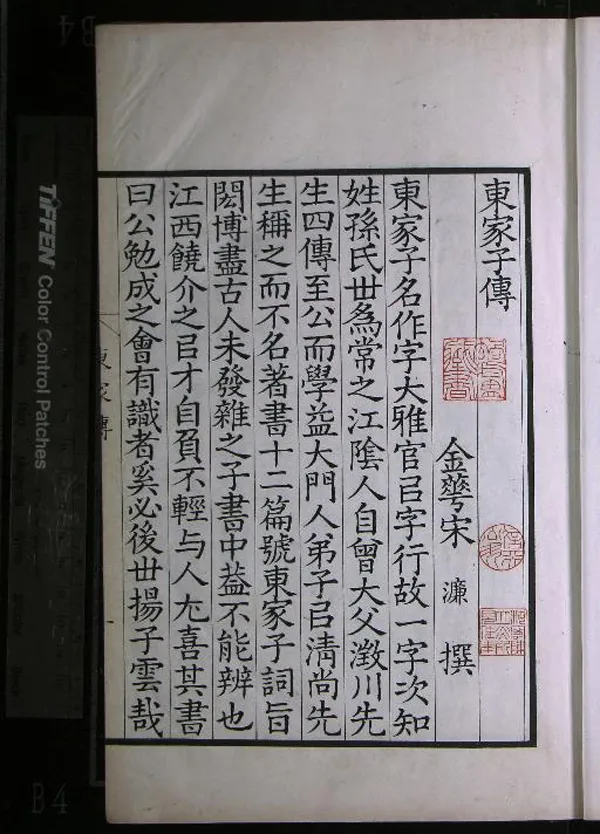 東家子傳
金華宋 濂 撰
東家子名作字大雅官㠯字行故一字次知
姓孫氏世爲常之江陰人自曾大父澂川先
生四傳至公而學益大門人弟子㠯清尚先
生稱之而不名著書十二篇號東家子詞旨
閎博盡古人未發雜之子書中益不能辨也
江西饒介之㠯才自負不輕与人尤喜其書
曰公勉成之會有識者奚必後世揚子雲哉
東家傳
TIFFEN Color Control Patches
B4
B4